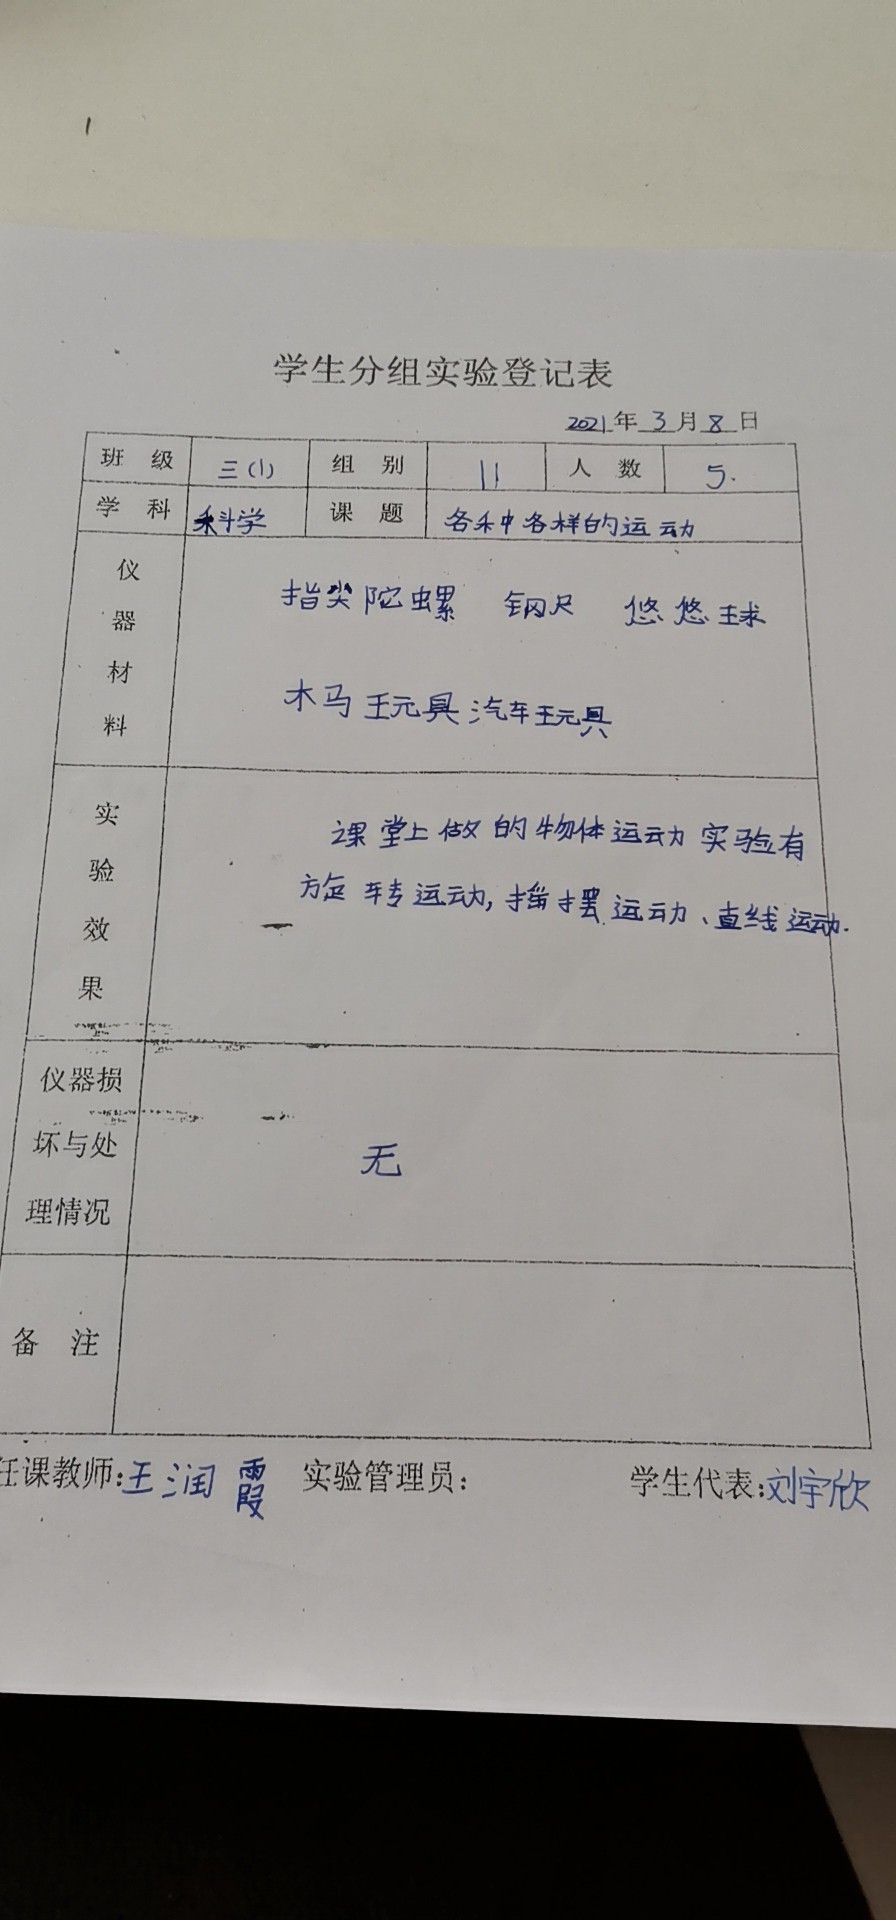 学生分组实验登记表
2021年3月8日
班级 三(1) 组别 11 人数 5.
学科 科学 课题 各种各样的运动
仪器材料
指尖陀螺 钢尺 悠悠球
木马玩具 汽车玩具
实验效果
课堂上做的物体运动实验有
旋转运动,摇摆运动、直线运动.
仪器损
坏与处
理情况
无
备注
任课教师:王润霞 实验管理员: 学生代表:刘宇欣